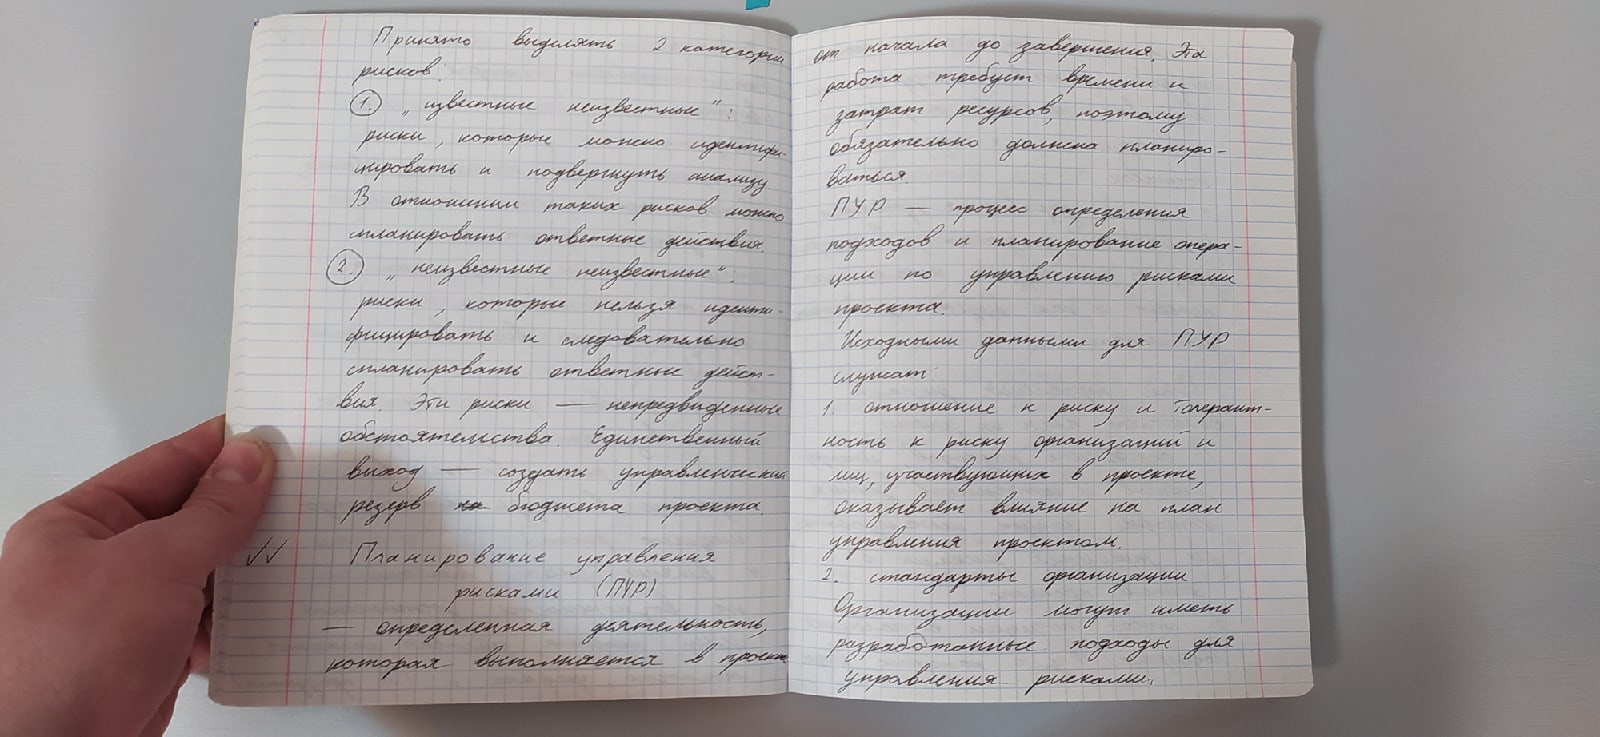 Принято выделять 2 категории
рисков:
1. „известные неизвестные":
риски, которые можно идентифи-
цировать и подвергнуть анализу
В отношении таких рисков можно
планировать ответные действия.
2. „неизвестные неизвестные":
риски, которые нельзя иденти-
фицировать и следовательно
спланировать ответные дейст-
вия. Эти риски — непредвиденные
обстоятельства. Единственный
выход — создать управленческий
резерв бюджета проекта.
√√ Планирование управления
рисками (ПУР)
— определенная деятельность,
которая выполняется в проект
от начала до завершения. Эта
работа требует времени и
затрат ресурсов, поэтому
обязательно должна планиро-
ваться.
ПУР — процесс определения
подходов и планирование опера-
ции по управлению рисками
проекта.
Исходными данными для ПУР
служат:
1. отношение к риску и толерант-
ность к риску организаций и
лиц, участвующих в проекте,
оказывает влияние на план
управления проектом.
2. стандарты организации
Организации могут иметь
разработанные подходы для
управления рисками.